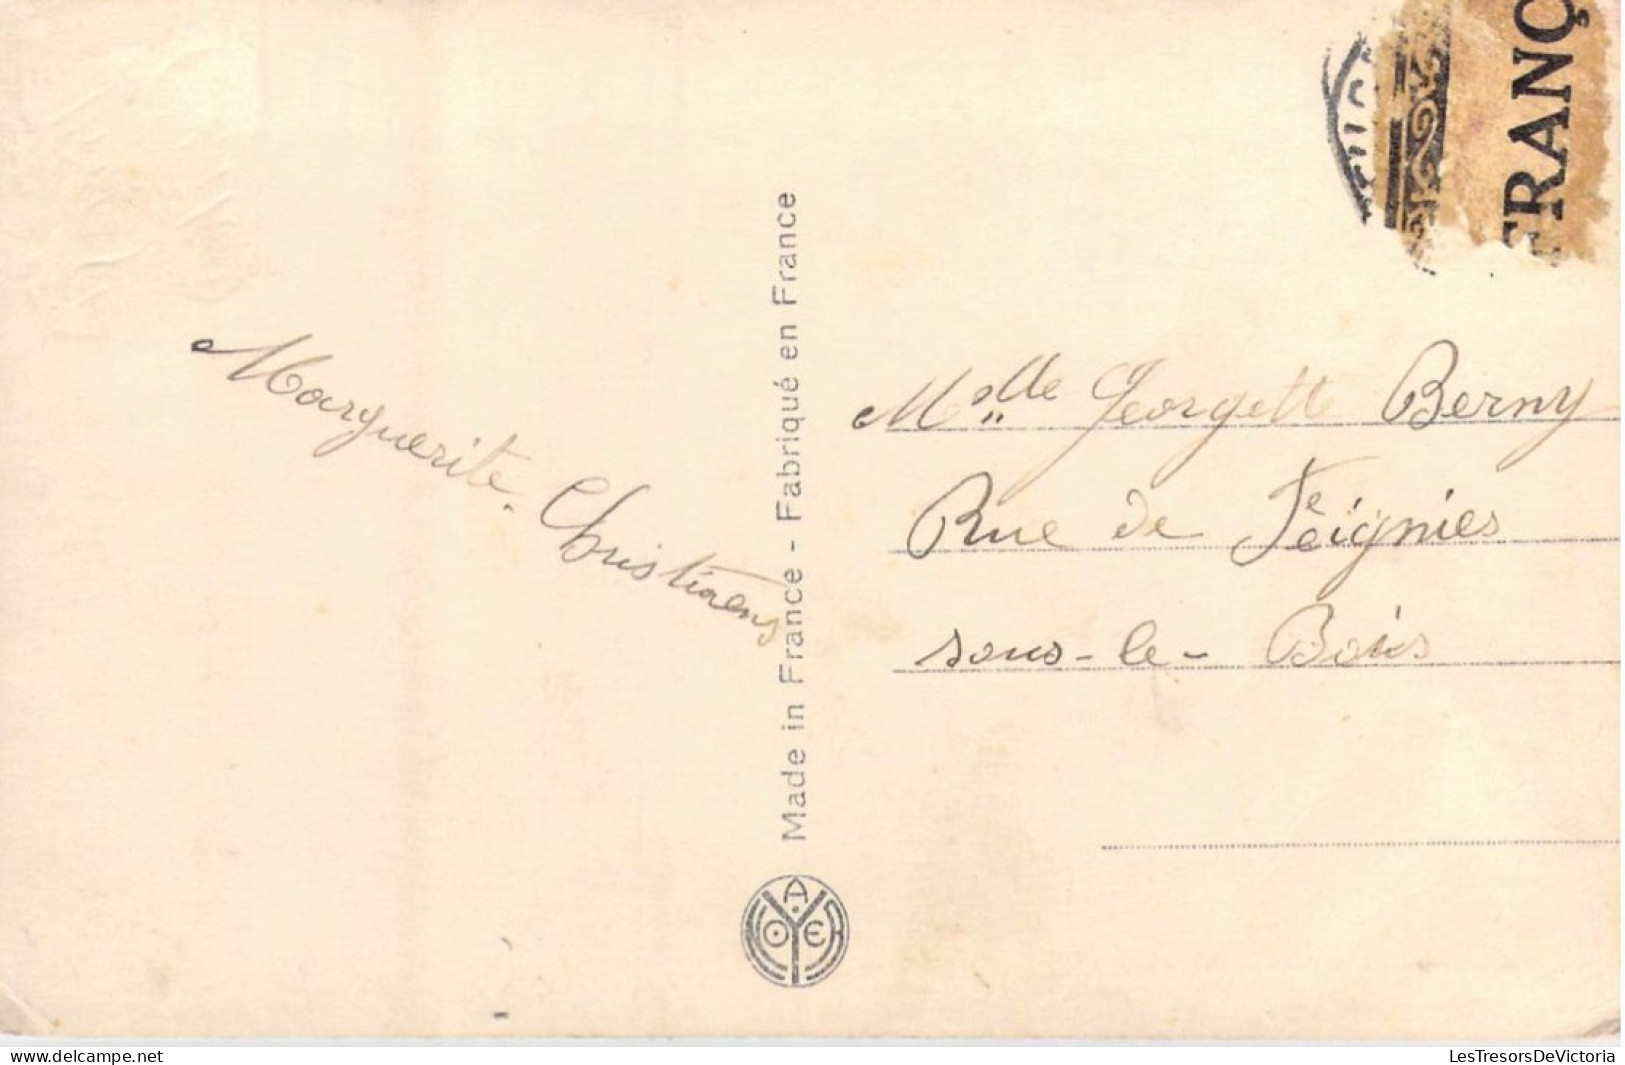 FRANÇ
Marguerite. Christiaens
Made in France - Fabriqué en France
Melle Georgette Berny
Rue de Feignies
sous-le-Bois
A
O Y E
delcampe.net
LesTresorsDeVictoria